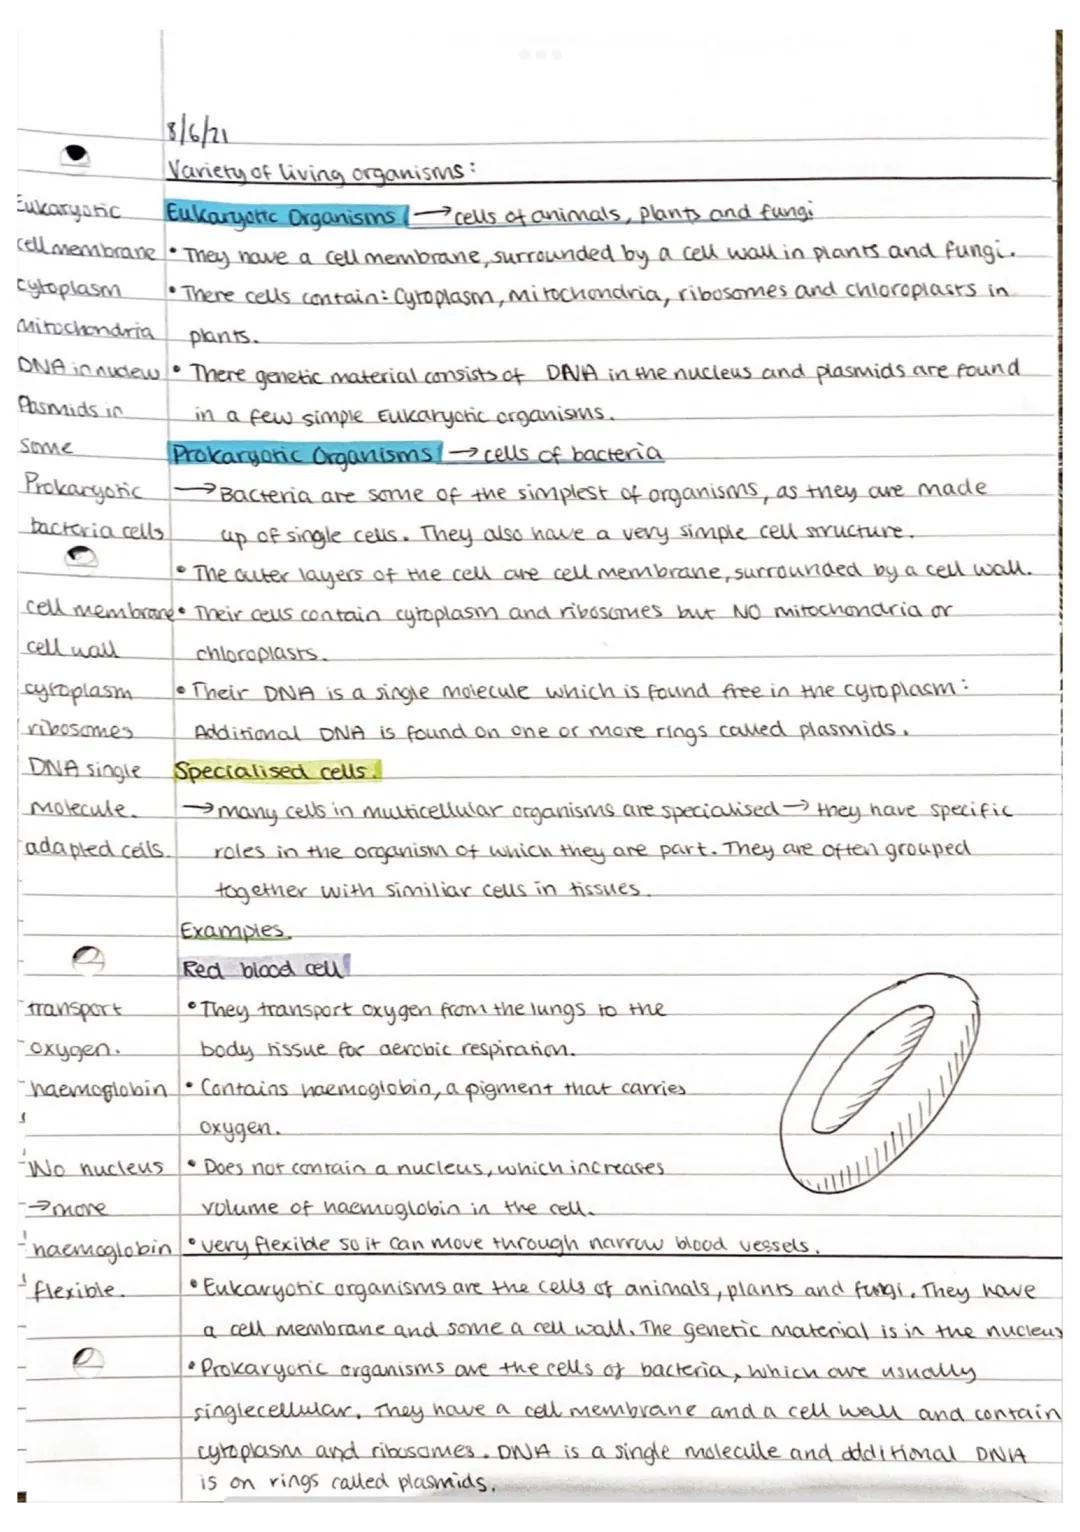 8/6/21
Variety of living organisms:
Eukaryotic Eukaryotic Organisms → cells of animals, plants and fungi
cell membrane • They have a cell membrane, surrounded by a cell wall in plants and fungi.
cytoplasm • There cells contain: Cytoplasm, Mitochondria, ribosomes and chloroplasts in
Mitochondria plants.
DNA in nuclew • There genetic material consists of DNA in the nucleus and plasmids are found
Pasmids in in a few simple Eukaryotic organisms.
Some Prokaryotic Organisms → cells of bacteria
Prokaryotic → Bacteria are some of the simplest of organisms, as they are made
bacteria cells up of single cells. They also have a very simple cell structure.
• The outer layers of the cell are cell membrane, surrounded by a cell wall.
cell membrane • Their cells contain cytoplasm and ribosomes but NO mitochondria or
cell wall chloroplasts.
cytoplasm • Their DNA is a single molecule which is found free in the cytoplasm:
ribosomes Additional DNA is found on one or more rings called plasmids.
DNA single Specialised cells.
Molecule. → many cells in multicellular organisms are specialised → they have specific
adapted cells. roles in the organism of which they are part. They are often grouped
together with similiar cells in tissues.
Examples.
Red blood cell
transport • They transport oxygen from the lungs to the
oxygen. body tissue for aerobic respiration.
haemoglobin • Contains haemoglobin, a pigment that carries
oxygen.
No nucleus • Does not contain a nucleus, which increases
→ more volume of haemoglobin in the cell.
haemoglobin • very flexible so it can move through narrow blood vessels.
flexible. • Eukaryotic organisms are the cells of animals, plants and fungi. They have
a cell membrane and some a cell wall. The genetic material is in the nucleus
• Prokaryotic organisms are the cells of bacteria, which are usually
singlecellular. They have a cell membrane and a cell wall and contain
cytoplasm and ribosomes. DNA is a single molecule and additional DNA
is on rings called plasmids.